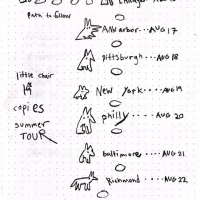 Path to follow
Ann arbor...AUG 17
pittsburgh...AUG 18
little chair
New York....AUG 19
copies
philly....AUG 20
summer
TOUR
baltimore....AUG 21
Richmond....AUG 22